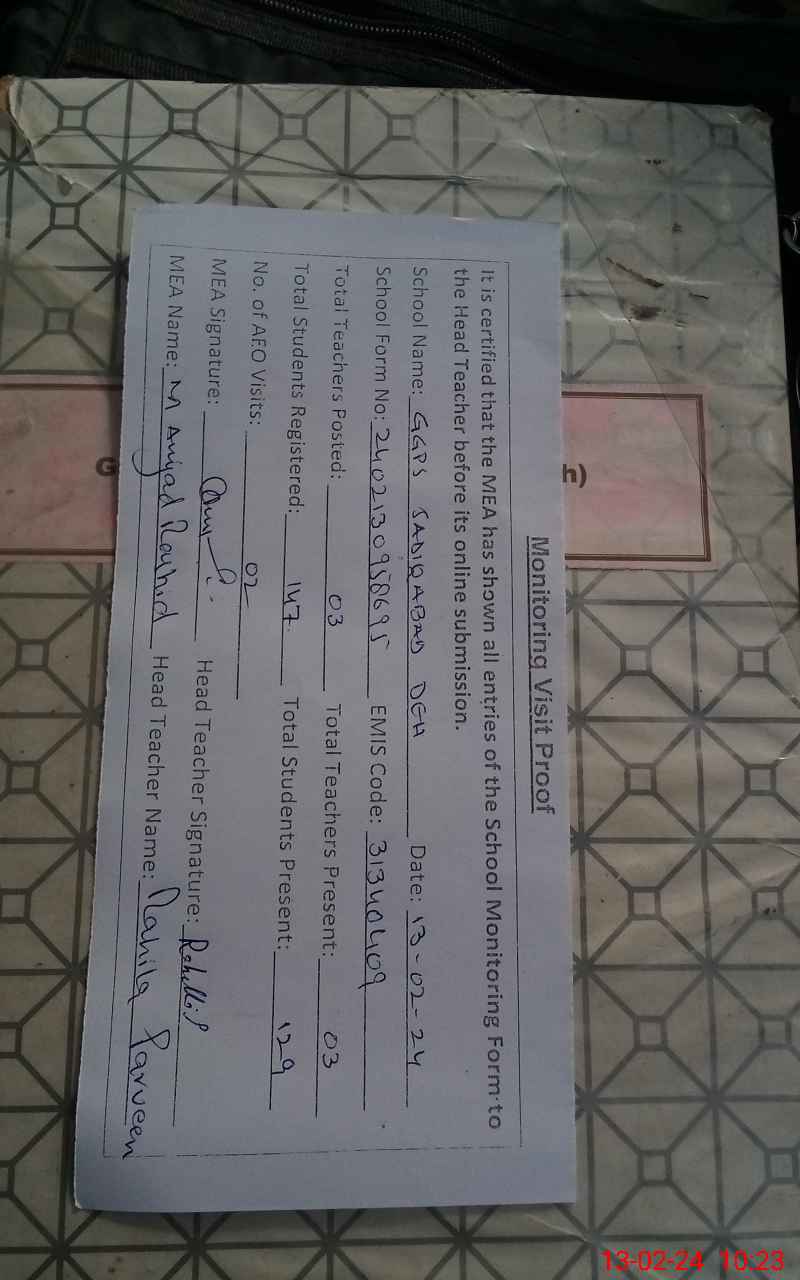 Monitoring Visit Proof
It is certified that the MEA has shown all entries of the School Monitoring Form to
the Head Teacher before its online submission.
School Name: GGPS SADIQABAD DEH Date: 13-02-24
School Form No: 2402130958695 EMIS Code: 31340409
Total Teachers Posted: 03 Total Teachers Present: 03
Total Students Registered: 147 Total Students Present: 129
No. of AEO Visits: 02
MEA Signature: Head Teacher Signature:
MEA Name: M Amjad Rashid Head Teacher Name: Rahila Parveen
13-02-24 10:23